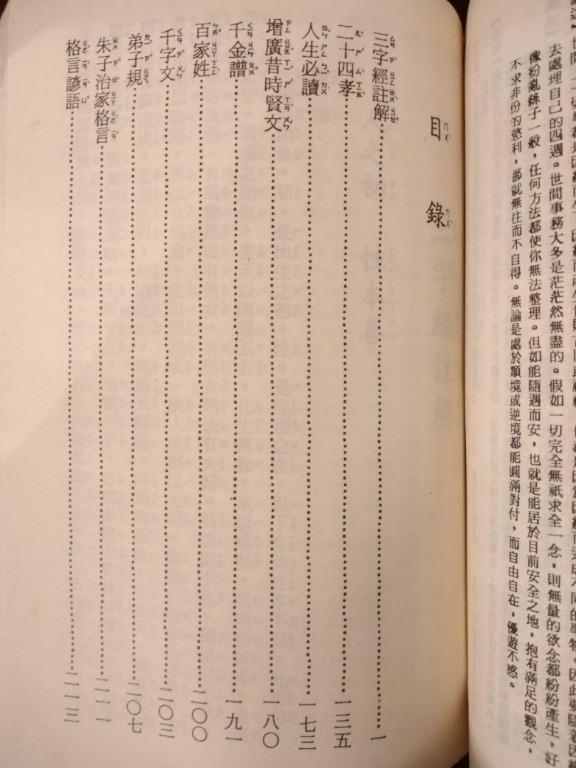 去處理自己的四週。世間事務大多是茫茫然無盡的。假如一切完全無祇求全一念,則無量的欲念都紛紛產生,好
像紛亂絲子一般,任何方法都使你無法整理。但如能隨遇而安,也就是能居於目前安全之地,抱有滿足的觀念,
不求非份的慾利,那就無往而不自得。無論是處於順境或逆境都能圓滿對付,而自由自在,優遊不惑。
目錄
三字經註解 一
二十四孝 一三五
人生必讀 一七三
增廣昔時賢文 一八〇
千金譜 一九一
百家姓 二〇〇
千字文 二〇三
弟子規 二〇七
朱子治家格言 二一一
格言諺語 二一三